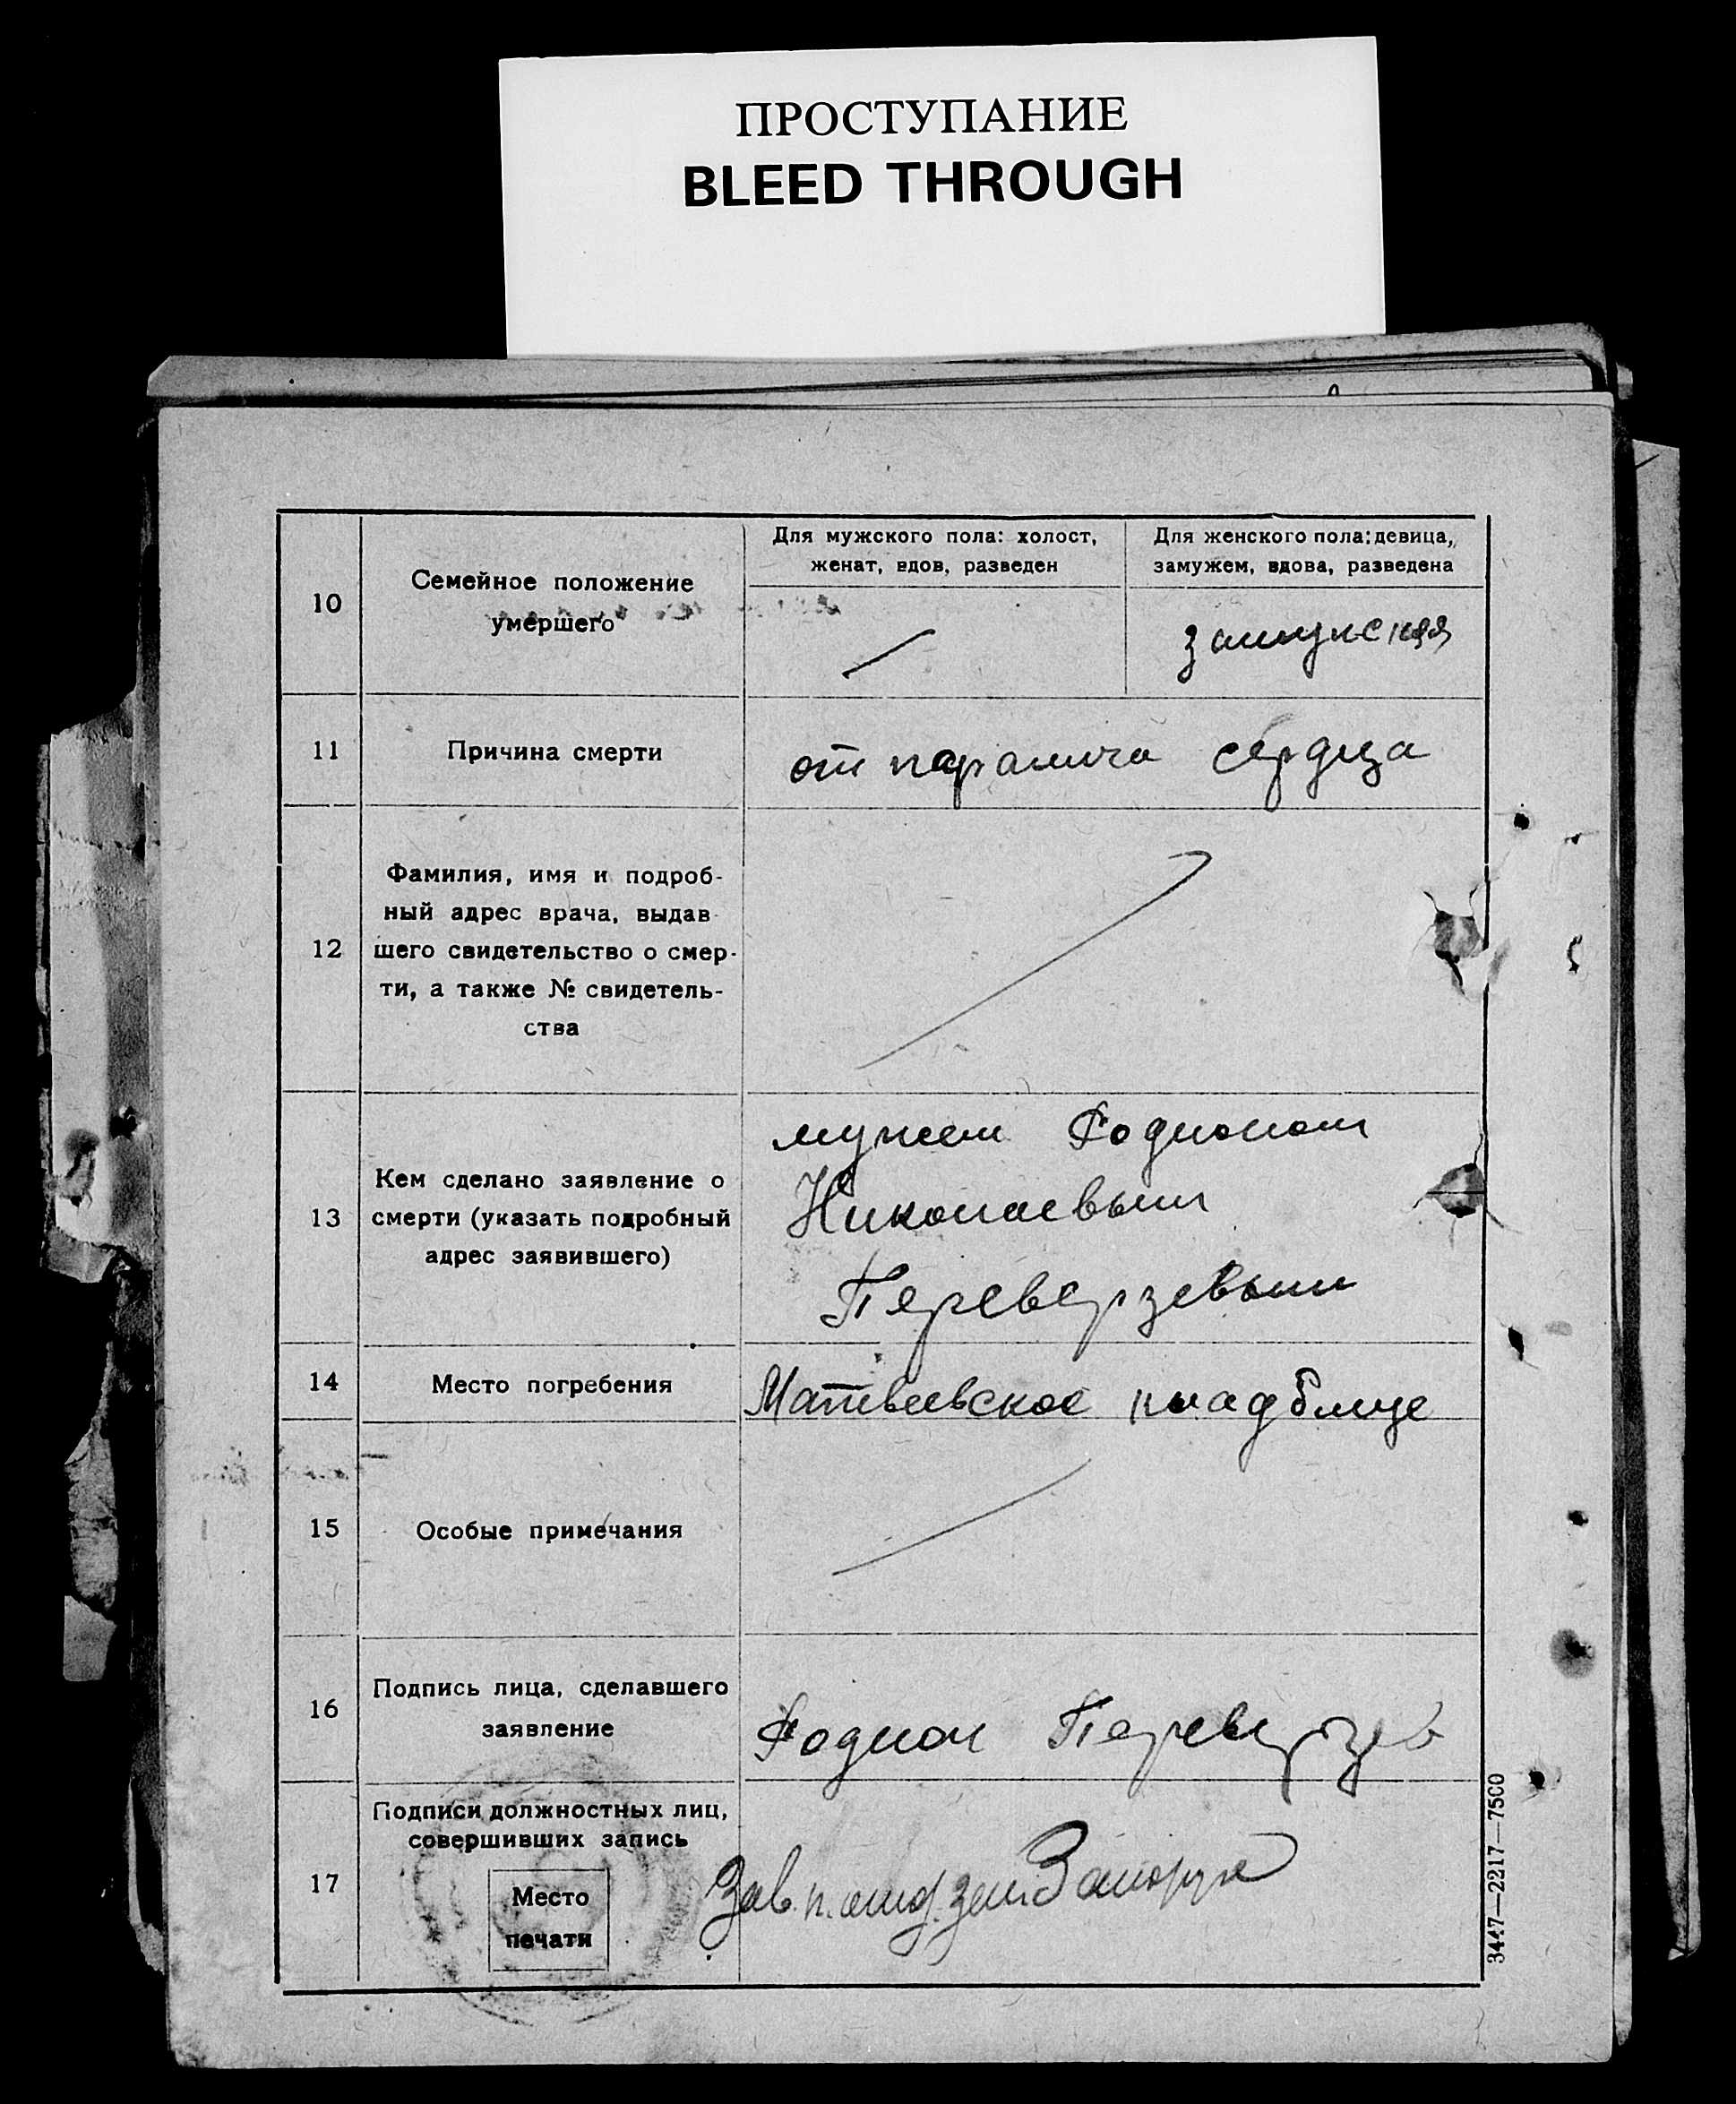 ПРОСТУПАНИЕ
BLEED THROUGH
10
Семейное положение
умершего
Для мужского пола: холост,
женат, вдов, разведен
Для женского пола: девица,
замужем, вдова, разведена
замужняя
11
Причина смерти
от паралича сердца
12
Фамилия, имя и подроб-
ный адрес врача, выдав-
шего свидетельство о смер-
ти, а также № свидетель-
ства
13
Кем сделано заявление о
смерти (указать подробный
адрес заявившего)
мужем Родионом
Николаевым
Переверзевым
14
Место погребения
Матвеевское кладбище
15
Особые примечания
16
Подпись лица, сделавшего
заявление
Родион Переверзев
17
Подписи должностных лиц,
совершивших запись
Место
печати
Зав.
3447—2217—7500